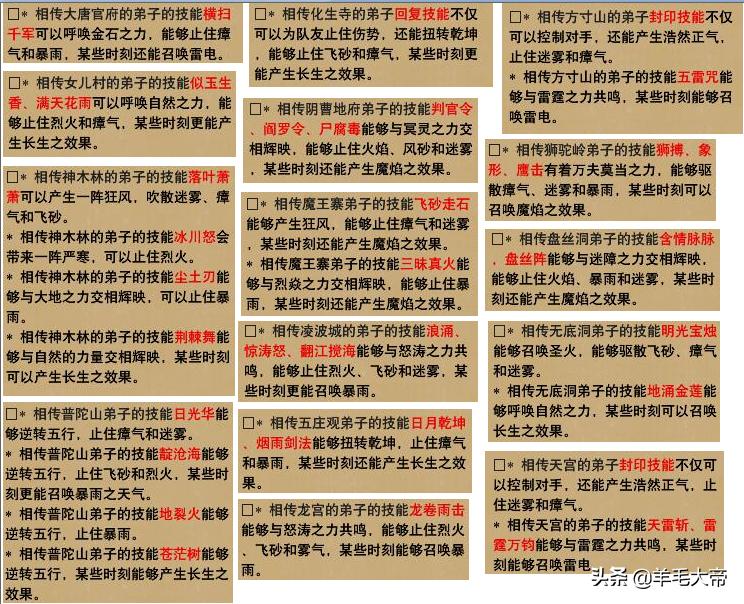 □* 相传大唐官府的弟子的技能横扫
千军可以呼唤金石之力，能够止住瘴
气和暴雨，某些时刻还能召唤雷电。
□* 相传女儿村的弟子的技能似玉生
香、满天花雨可以呼唤自然之力，能
够止住烈火和瘴气，某些时刻更能产
生长生之效果。
□* 相传神木林的弟子的技能落叶萧
萧可以产生一阵狂风，吹散迷雾、瘴
气和飞砂。
* 相传神木林的弟子的技能冰川怒会
带来一阵严寒，可以止住烈火。
* 相传神木林的弟子的技能尘土刃能
够与大地之力交相辉映，可以止住暴
雨。
* 相传神木林的弟子的技能荆棘舞能
够与自然的力量交相辉映，某些时刻
可以产生长生之效果。
□* 相传普陀山弟子的技能日光华能
够逆转五行，止住瘴气和迷雾。
* 相传普陀山弟子的技能靛沧海能够
逆转五行，止住飞砂和烈火，某些时
刻更能召唤暴雨之天气。
* 相传普陀山弟子的技能地裂火能够
逆转五行，止住暴雨。
* 相传普陀山弟子的技能苍茫树能够
逆转五行，某些时刻能够产生长生之
效果。
□* 相传化生寺的弟子回复技能不仅
可以为队友止住伤势，还能扭转乾坤
，能够止住飞砂和瘴气，某些时刻更
能产生长生之效果。
□* 相传阴曹地府弟子的技能判官令
、阎罗令、尸腐毒能够与冥灵之力交
相辉映，能够止住火焰、风砂和迷雾
，某些时刻还能产生魔焰之效果。
□* 相传魔王寨弟子的技能飞砂走石
能够产生狂风，能够止住瘴气和迷雾
，某些时刻还能产生魔焰之效果。
* 相传魔王寨弟子的技能三昧真火能
够与烈焱之力交相辉映，能够止住暴
雨，某些时刻还能产生魔焰之效果。
□* 相传凌波城的弟子的技能浪涌、
惊涛怒、翻江搅海能够与怒涛之力共
鸣，能够止住烈火、飞砂和迷雾，某
些时刻更能召唤暴雨。
□* 相传五庄观弟子的技能日月乾坤
、烟雨剑法能够扭转乾坤，止住瘴气
和暴雨，某些时刻还能产生长生之效
果。
□* 相传龙宫的弟子的技能龙卷雨击
能够与怒涛之力共鸣，能够止住烈火
、飞砂和雾气，某些时刻能够召唤暴
雨。
□* 相传方寸山的弟子封印技能不仅
可以控制对手，还能产生浩然正气，
止住迷雾和瘴气。
* 相传方寸山的弟子的技能五雷咒能
够与雷霆之力共鸣，某些时刻能够召
唤雷电。
□* 相传狮驼岭弟子的技能狮搏、象
形、鹰击有着万夫莫当之力，能够驱
散瘴气、迷雾和暴雨，某些时刻可以
召唤魔焰之效果。
□* 相传盘丝洞弟子的技能含情脉脉
，盘丝阵能够与迷障之力交相辉映，
能够止住火焰、暴雨和迷雾，某些时
刻还能产生魔焰之效果。
□* 相传无底洞弟子的技能明光宝烛
能够召唤圣火，能够驱散飞砂、瘴气
和迷雾。
* 相传无底洞弟子的技能地涌金莲能
够呼唤自然之力，某些时刻可以召唤
长生之效果。
□* 相传天宫的弟子封印技能不仅可
以控制对手，还能产生浩然正气，止
住迷雾和瘴气。
* 相传天宫的弟子的技能天雷斩、雷
霆万钧能够与雷霆之力共鸣，某些时
刻能够召唤雷电
头条 @羊毛大帝